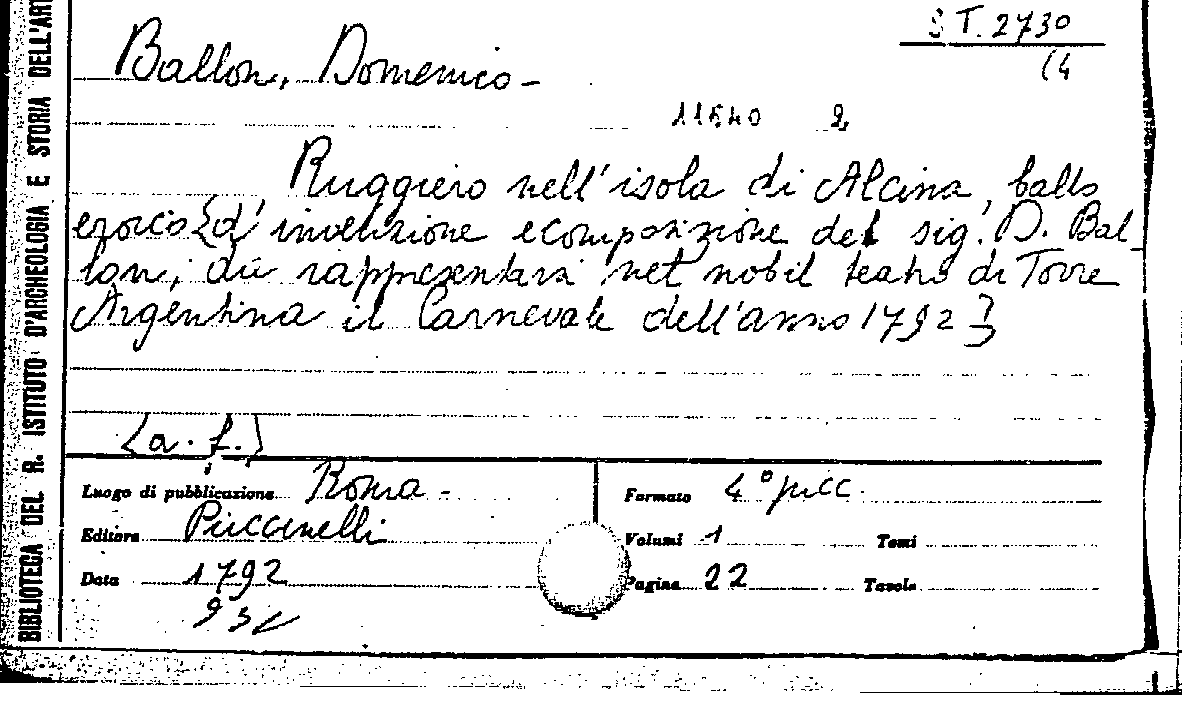 BIBLIOTECA DEL R. ISTITUTO D'ARCHEOLOGIA E STORIA DELL'ART
S.T. 2730
(4
Ballon, Domenico -
11540 2
Ruggiero nell'isola di Alcina, ballo
eroico {d'invenzione e composizione del sig. D. Bal-
lon, da rappresentarsi nel nobil teatro di Torre
Argentina il Carnevale dell'anno 1792}
{a. f.}
Luogo di pubblicazione Roma -
Editore Puccinelli
Data 1792
Formato 4° picc.
Volumi 1 Tomi
Pagine 22 Tavole